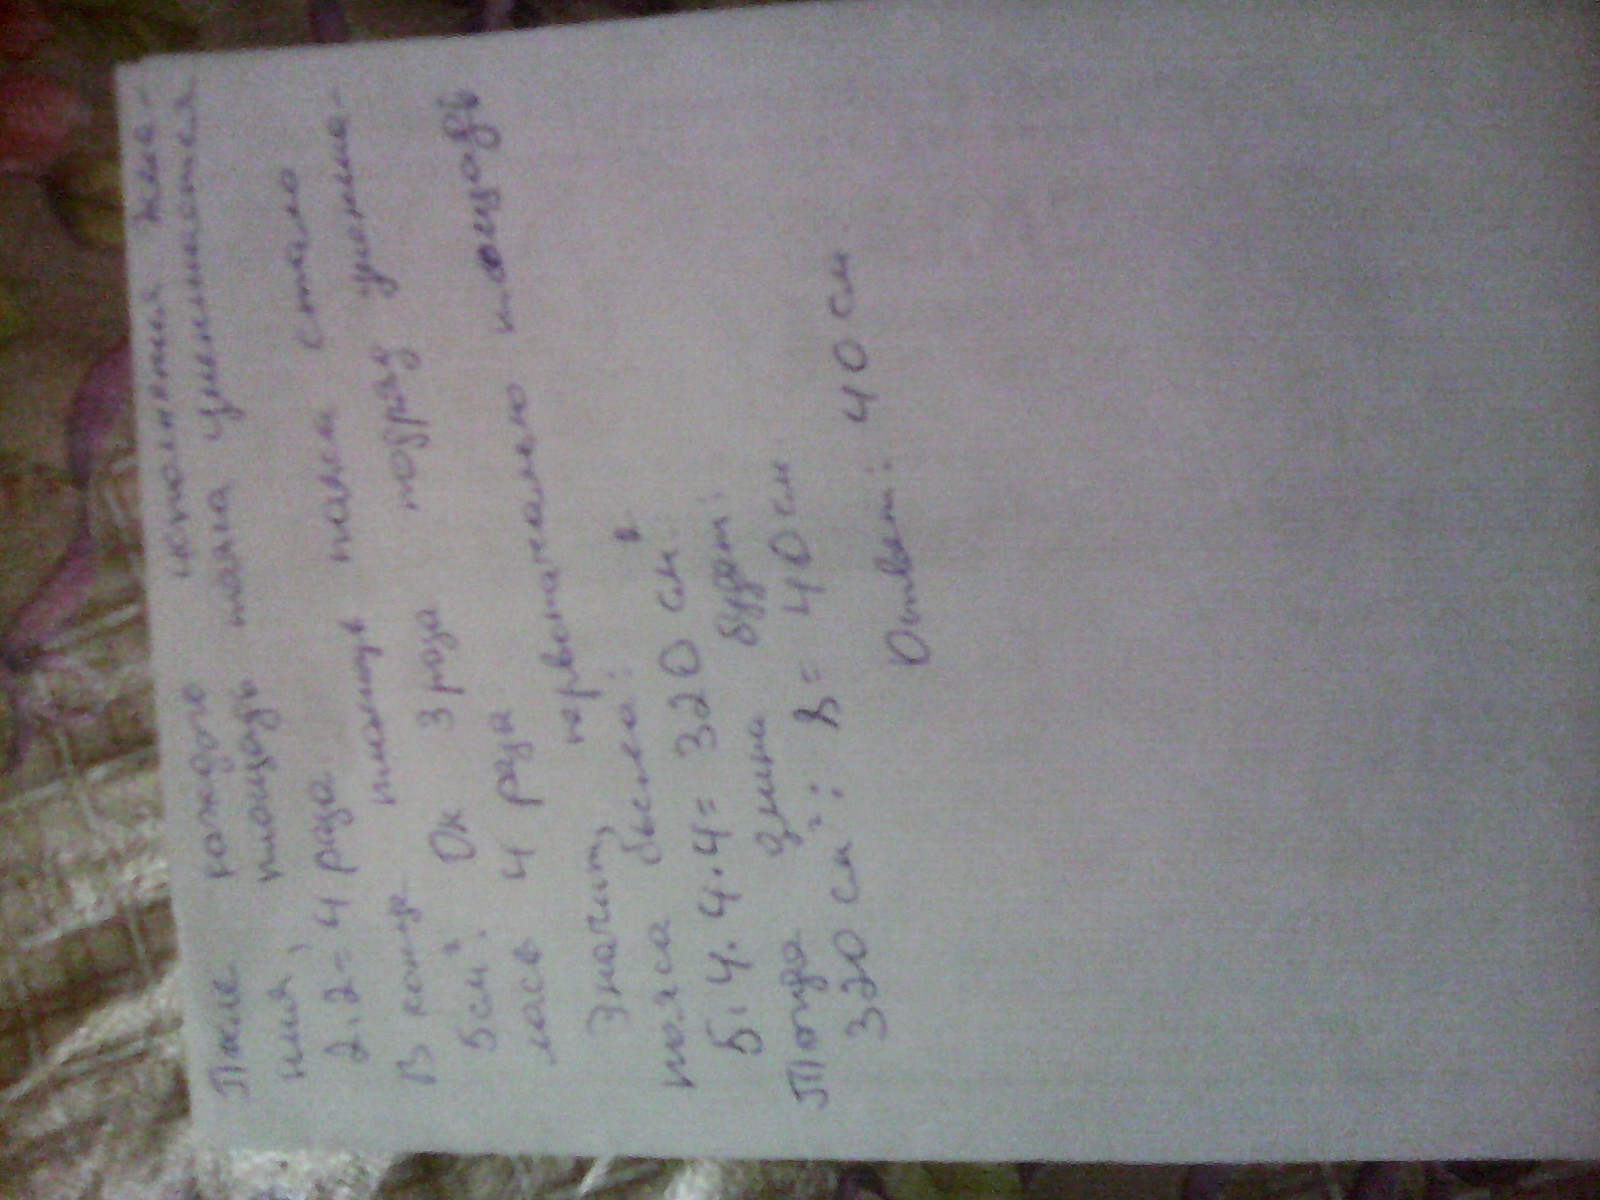 После каждого исполнения жела-
ния, площадь пояса уменьшается
2·2=4 раза.
В конце площадь пояса стало
5 см². Ок 3 раза подряд уменьша-
лась 4 раза.
Значит, первоначально площадь
пояса была:
5·4·4·4=320 см²
Тогда длина будет:
320 см²: 8= 40 см
Ответ: 40 см